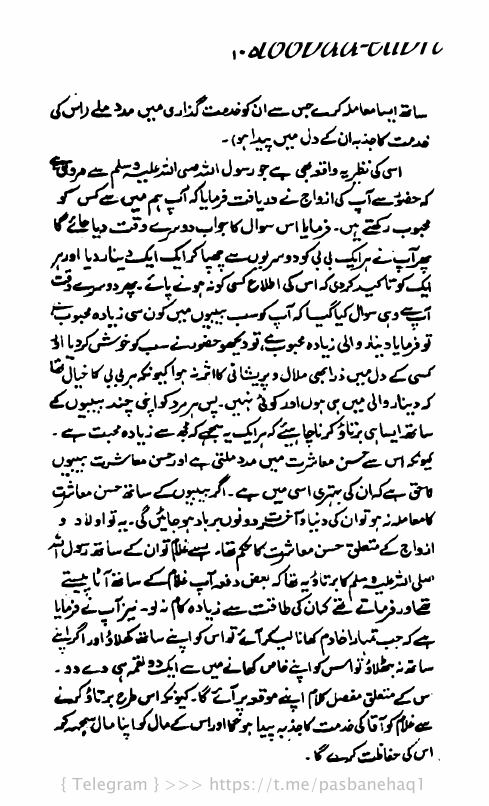 ساتھ ایسا معاملہ کرے جس سے ان کو خدمت گذاری میں مدد ملے راس کی
خدمت کا جذبہ ان کے دل میں پیدا ہو) ۔
اسی کی نظیر یہ واقعہ بھی ہے جو رسول اللہ صلی اللہ علیہ وسلم سے مروی ہے
کہ حضور سے آپ کی ازواج نے دریافت فرمایا کہ آپ ہم میں سے کس کو
محبوب رکھتے ہیں ۔ فرمایا اس سوال کا جواب دوسرے وقت دیا جائے گا
پھر آپ نے ہر ایک بی بی کو دوسریوں سے چھپا کر ایک ایک دینار دیا اور ہر
ایک کو تاکید کر دی کہ اس کی اطلاع کسی کو نہ ہونے پائے ۔ پھر دوسرے وقت
آپ سے وہی سوال کیا گیا کہ آپ کو سب بیبیوں میں کون سی زیادہ محبوب ہے
تو فرمایا دینار والی زیادہ محبوب ہے ، تو دیکھو حضور نے سب کو خوش کر دیا اور
کسی کے دل میں ذرا بھی ملال و پریشانی کا اثر نہ ہوا کیونکہ ہر بی بی کا خیال تھا
کہ دینار والی میں ہی ہوں اور کوئی نہیں ۔ پس ہر مرد کو اپنی چند بیبیوں کے
ساتھ ایسا ہی برتاؤ کرنا چاہئے کہ ہر ایک یہ سمجھے کہ مجھ سے زیادہ محبت ہے ۔
کیونکہ اس سے حسن معاشرت میں مدد ملتی ہے اور حسن معاشرت بیبیوں
کا حق ہے کہ ان کی بہتری اسی میں ہے ۔ اگر بیبیوں کے ساتھ حسن معاشرت
کا معاملہ نہ ہو تو ان کی دنیا و آخرت دونوں برباد ہو جائیں گی ۔ یہ تو اولاد و
ازواج کے متعلق حسن معاشرت کا حکم تھا ۔ رہے غلام تو ان کے ساتھ رسول اللہ
صلی اللہ علیہ وسلم کا برتاؤ یہ تھا کہ بعض دفعہ آپ غلام کے ساتھ آٹا پیستے
تھے اور فرماتے تھے کہ ان کی طاقت سے زیادہ کام نہ لو ۔ نیز آپ نے فرمایا
ہے کہ جب تمہارا خادم کھانا لیکر آئے تو اس کو اپنے ساتھ کھلاؤ اور اگر اپنے
ساتھ نہ بٹھلاؤ تو اس کو اپنے خاص کھانے میں سے ایک دو لقمہ ہی دے دو ۔
س کے متعلق مفصل کلام اپنے موقعہ پر آئے گا ۔ کیونکہ اس طرح برتاؤ کرنے
سے غلام کو آقا کی خدمت کا جذبہ پیدا ہو گا اور اس کے مال کو اپنا مال سمجھ کر
اس کی حفاظت کرے گا ۔
{ Telegram } >>> https://t.me/pasbanehaq1